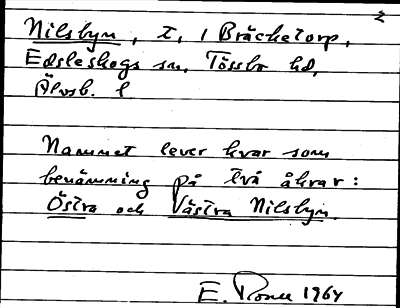 2
Nilsbyn, t, i Bräcketorp,
Edsleskogs sn, Tössbo hd,
Älvsb. l
Namnet lever kvar som
benämning på två åkrar:
Östra och Västra Nilsbyn.
E. 1964